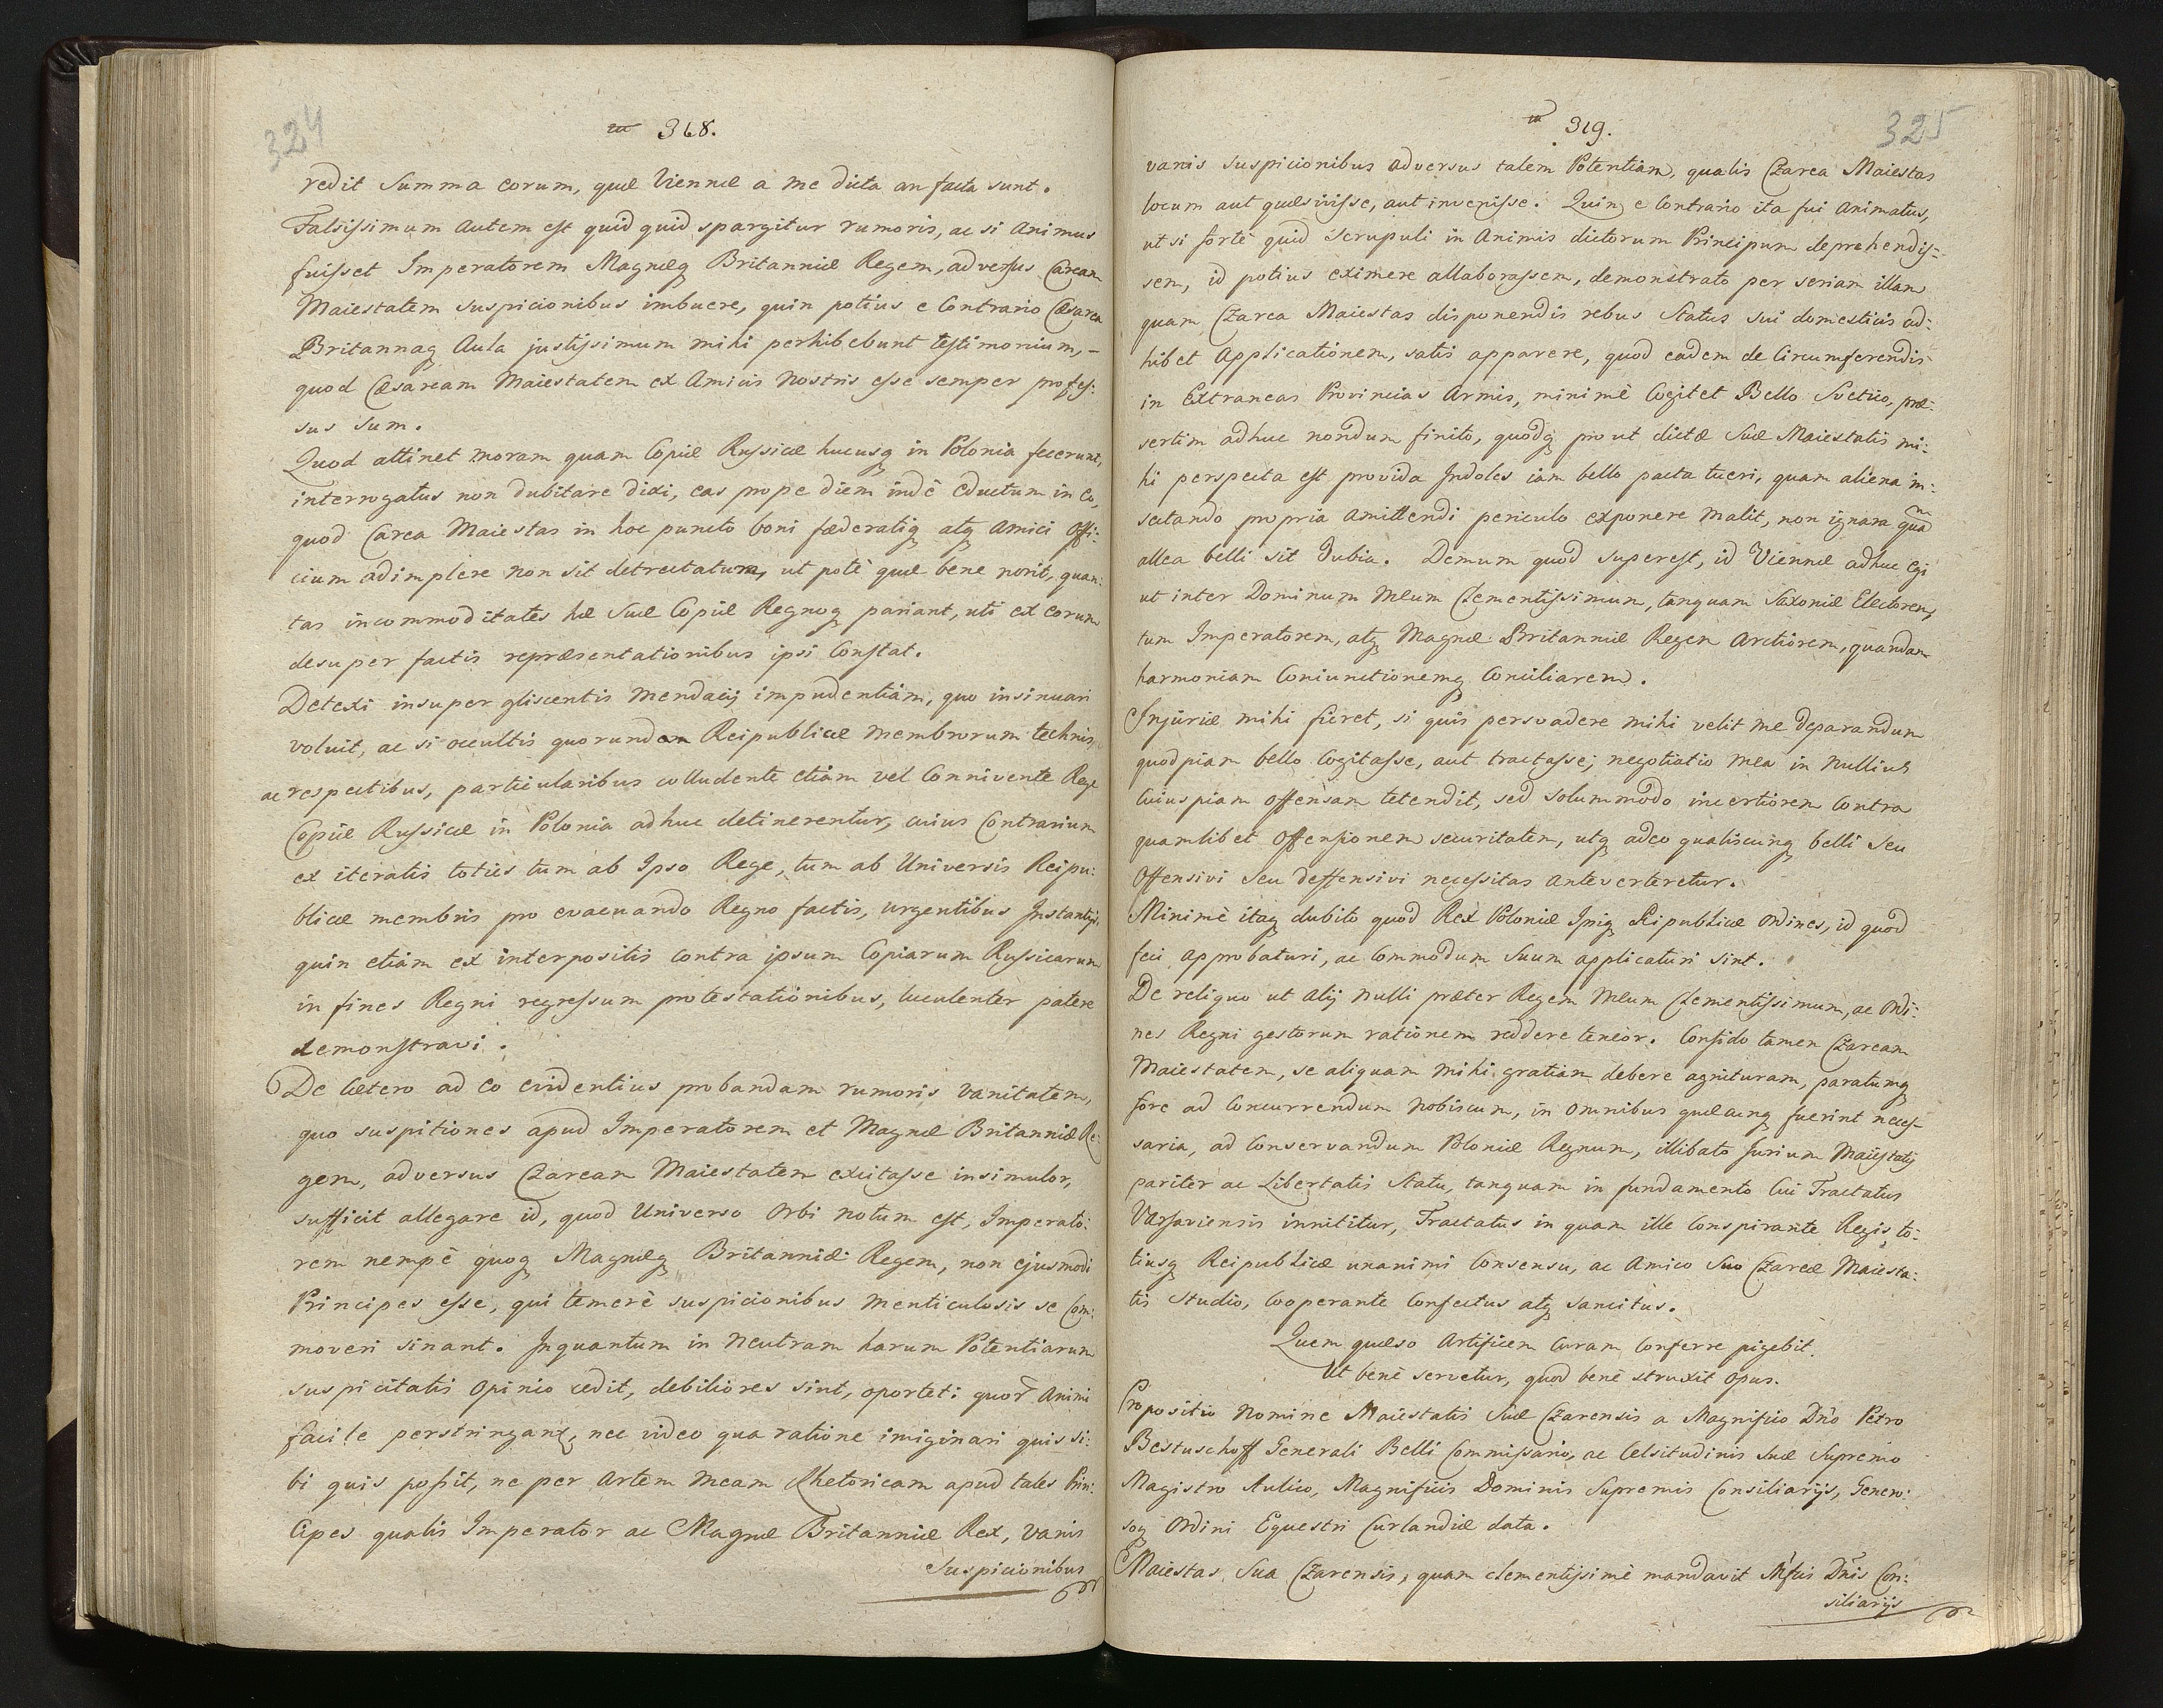 324
318.
redit Summa eorum, quæ Viennæ a me dicta an facta sunt.
Falsissimum autem est quid quid spargitur rumoris, ac si animus
fuisset Imperatorem Magnæq Britanniæ Regem, adversus Caream
Maiestatem suspicionibus imbuere, quin potius e Contrario Cæsarea
Britannaq Aula justissimum mihi perhibebunt testimonium, –
quod Cæsaream Maiestatem ex Amicis nostris esse semper profes:
sus sum.
Quod attinet moram quam Copiæ Russicæ hucusq in Polonia fecerunt,
interrogatus non dubitare dixi, eas prope diem indè eductum in eo,
quod Carea Maiestas in hoc puncto boni fæderatiq atq amici offi:
cium adimplere non sit detrectatura, ut potè quæ bene norit, quan:
tas incommoditates hæ Suæ Copiæ Regnoq pariant, uti ex eorum
desuper factis repræsentationibus ipsi Constat.
Detexi insuper gliscentis mendacij impudentiam, quo insinuari
voluit, ac si occultis quorundam Reipublicæ membrorum technis,
ac respectibus, particularibus colludente etiam vel Connivente Rege
Copiæ Russicæ in Polonia adhuc detinerentur, cuius Contrarium
ex iteratis toties tum ab Ipso Rege, tum ab Universis Reipu:
blicæ membris pro evacuando Regno factis, urgentibus Instantijs,
quin etiam ex interpositis contra ipsum Copiarum Russicarum
in fines Regni regressum protestationibus, luculenter patere
demonstravi.
De Cætero ad eo evidentius probandam rumoris vanitatem,
quo suspitiones apud Imperatorem et Magnæ Britanniæ Re:
gem, adversus Czaream Maiestatem excitasse insimulor,
sufficit allegare id, quod Universo Orbi notum est, Imperato:
rem nempè quoq Magnæq Britanniæ Regem, non ejusmodi
Principes esse, qui temerè suspicionibus menticulosis se Com:
moveri sinant. Inquantum in neutram harum Potentiarum
suspicitatis opinio cedit, debiliores sint, oportet: quor animi
facile perstringant, nec video qua ratione imiginari quis si:
bi quis possit, ne per artem meam Rhetoricam apud tales Prin:
cipes qualis Imperator ac Magnæ Britanniæ Rex, vanis
Suspicionibus
325
319.
vanis suspicionibus adversus talem Potentiam, qualis Czarea Maiestas
locum aut quæsivisse, aut invenisse. Quin e Contrario ita fui animatus,
ut si fortè quid scrupuli in Animis dictorum Principum deprehendis=
sem, id potius eximere allaborassem, demonstrato per seriam illam
quam Czarea Maiestas disponendis rebus Status sui domesticis ad:
hibet applicationem, satis apparere, quod eadem de Circumferendis
in Extraneas Provincias Armis, minimè Cogitet Bello Svetico, præ:
sertim adhuc nondum finito, quodq prout dictæ Suæ Maiestatis mi:
hi perspecta est provida Indoles iam bello parta tueri, quam aliena in:
sectando propria amittendi periculo exponere malit, non ignara quam
allea belli sit dubia. Demum quod superest, id Viennæ adhuc egi
ut inter Dominum Meum Clementissimum, tanquam Saxoniæ Electorem,
tum Imperatorem, atq Magnæ Britanniæ Regem arctiorem, quandam
harmoniam Coniunctionemq Conciliarem.
Injuriæ mihi fieret, si quis persvadere mihi velit me deparandum
quodpiam bello Cogitasse, aut tractasse; negotiatio mea in nullius
Cuiuspiam offensam tetendit, sed solummodo incertiorem Contra
quamlibet Offensionem securitatem, utq adeo qualiscunq belli seu
Offensivi seu deffensivi necessitas anteverteretur.
Minimè itaq dubito quod Rex Poloniæ Ipsiq Reipublicæ Ordines, id quod
feci approbaturi, ac Commodum Suum applicaturi sint.
De reliquo ut alij nulli præter Regem Meum Clementissimum, ac Ordi:
nes Regni gestorum rationem reddere teneor. Confido tamen Czaream
Maiestatem, se aliquam mihi gratiam debere agnituram, paratumq
fore ad Concurrendum nobiscum, in omnibus quæcunq fuerint neces=
saria, ad Conservandum Poloniæ Regnum, illibato Jurium Maiestatis
pariter ac Libertatis Statu, tanquam in fundamento Cui Tractatus
Varsaviensis innititur, Tractatus in quam ille Conspirante Regis, to:
tiusq Reipublicæ unanimi Consensu, ac Amico Suo Czareæ Maiesta:
tis Studio, Cooperante Confectus atq sancitus.
Quem quæso Artificem Curam Conferre pigebit.
Ut benè servetur, quod benè struxit opus.
Propositio Nomine Maiestatis Suæ Czarensis a Magnifico Dno Petro
Bestuschoff Generali Belli Commissario, ac Celsitudinis Suæ Supremo
Magistro Aulico, Magnificis Dominis Supremis Consiliarijs, Genero:
soq Ordini Equestri Curlandiæ data.
Maiestas Sua Czarensis, quam clementissimè mandavit Mfcis Dnis Con:
siliarijs